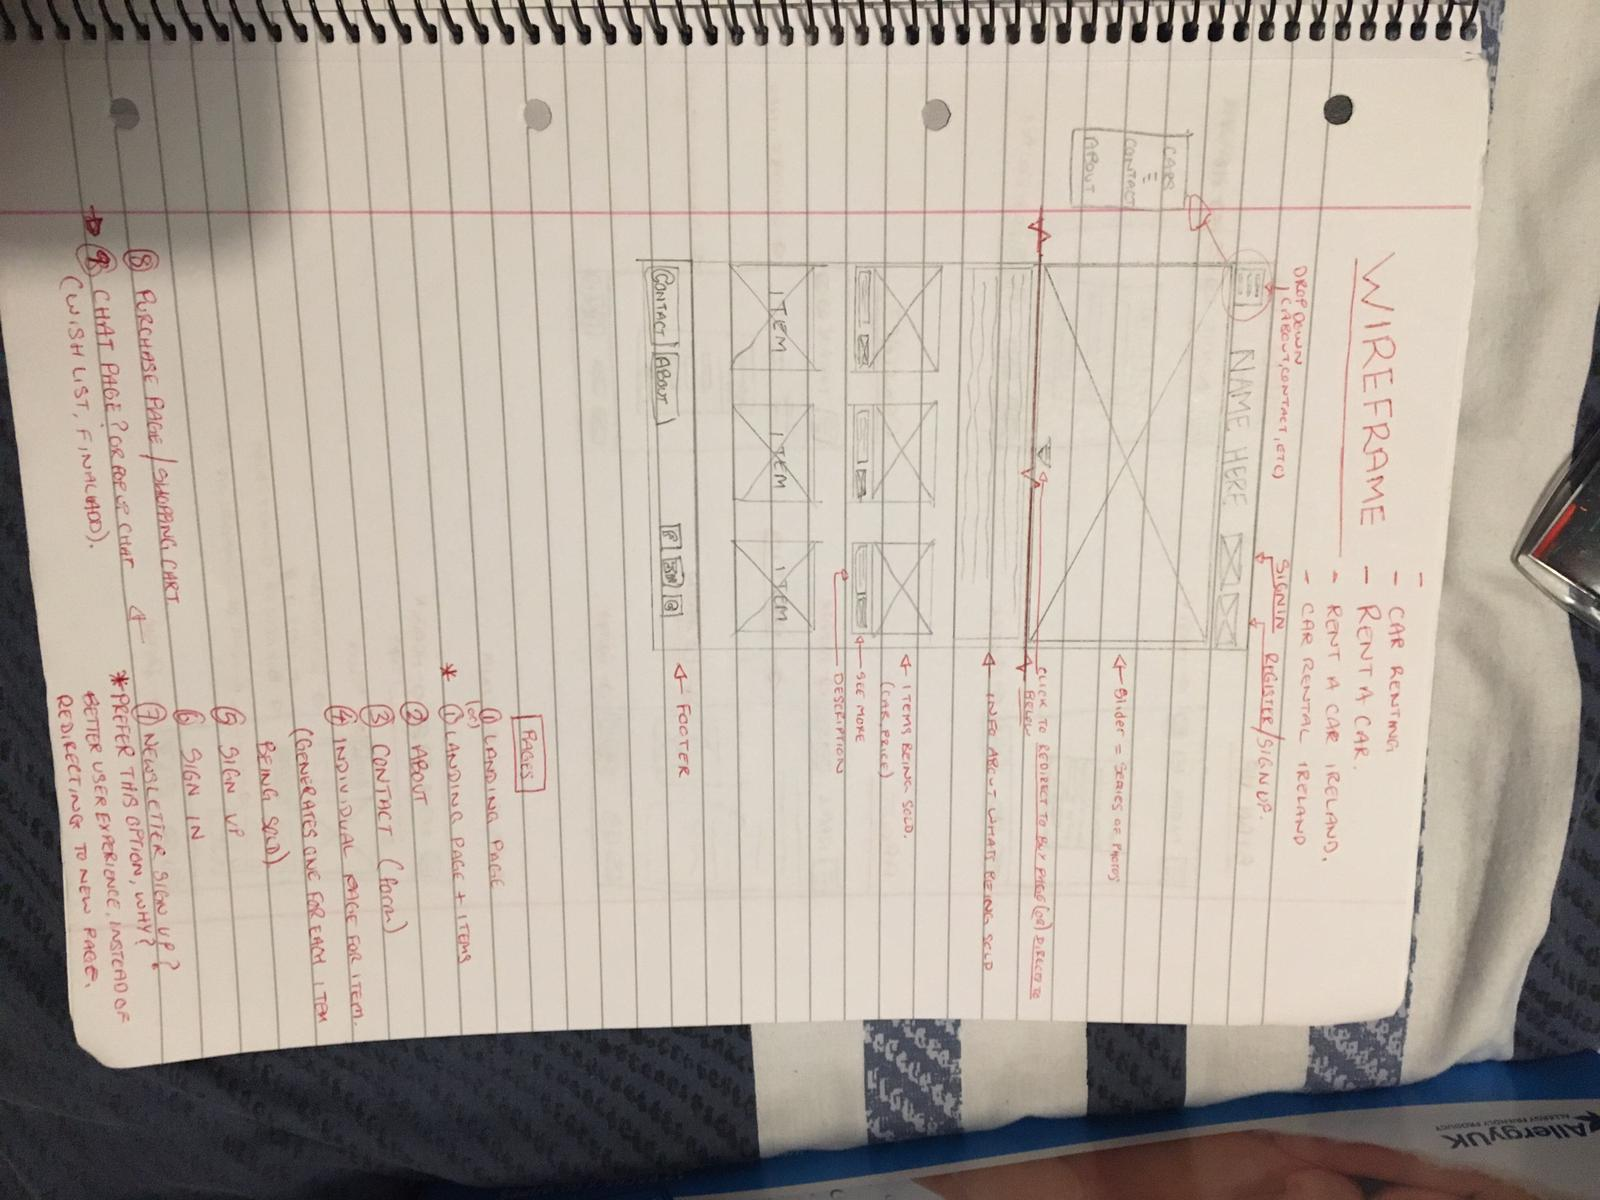 WIREFRAME
- CAR RENTING
- RENT A CAR.
- RENT A CAR IRELAND.
- CAR RENTAL IRELAND
DROP DOWN
(ABOUT, CONTACT, ETC)
SIGN IN REGISTER/SIGN UP.
NAME HERE
CARS
CONTACT
ABOUT
Slider = SERIES OF PHOTOS
CLICK TO REDIRECT TO BUY PAGE (OR) DIRECT TO
BELOW
INFO ABOUT WHATS BEING SOLD
ITEMS BEING SOLD.
(CAR, PRICE)
SEE MORE
DESCRIPTION
ITEM ITEM ITEM
CONTACT ABOUT
FOOTER
PAGES
① LANDING PAGE
(OR)
* ① LANDING PAGE + ITEMS
② ABOUT
③ CONTACT (form)
④ INDIVIDUAL PAGE FOR ITEM.
(GENERATES ONE FOR EACH ITEM
BEING SOLD)
⑤ SIGN UP
⑥ SIGN IN
⑦ NEWSLETTER SIGN UP?
* PREFER THIS OPTION, WHY?
BETTER USER EXPERIENCE, INSTEAD OF
REDIRECTING TO NEW PAGE.
⑧ PURCHASE PAGE / SHOPPING CART
⑨ CHAT PAGE? OR POP UP CHAT
(WISH LIST, FINAL ADD).
AllergyUK
ALLERGY FRIENDLY PRODUCT